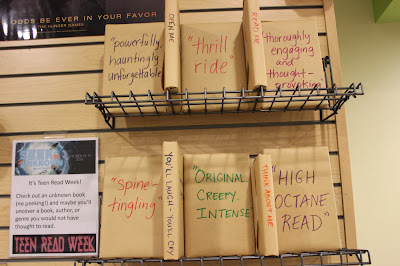 ODDS BE EVER IN YOUR FAVOR
THE HUNGER GAMES
"powerfully,
hauntingly
unforgettable"
OPEN ME
"thrill
ride"
READ ME
"thoroughly
engaging
and
thought-
provoking"
It's Teen Read Week!
Check out an unknown book
(no peeking!) and maybe you'll
uncover a book, author, or
genre you would not have
thought to read.
TEEN READ WEEK
"Spine
tingling"
YOU'LL LAUGH · YOU'LL CRY
"ORIGINAL
CREEPY.
INTENSE
THINK ABOUT ME
"HIGH
OCTANE
READ"